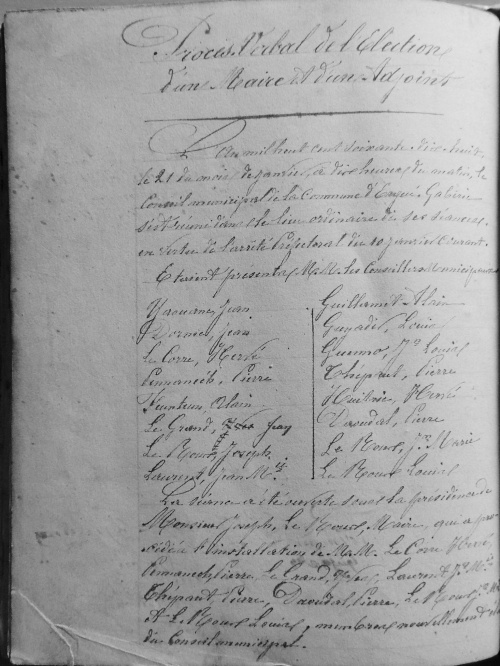 Procès Verbal de l'Election
d'un Maire et d'un Adjoint
L'an mil huit cent soixante dix huit
le 21 du mois de janvier, à dix heures du matin, le
Conseil municipal de la Commune d'Ergué-Gabéric
s'est réuni dans le lieu ordinaire de ses séances
en vertu de l'arrêté Préfectoral du 10 janvier Courant.
Etaient présents M.M. les Conseillers Municipaux
Yaouanc, Jean
Jean
Le Corre, Hervé
Pennanech, Pierre
Feunteun, Alain
Le Grand, Jean
Le Roux, Joseph
Laurent, Jean M.ie
Guillamet, Alain
Guyader, Louis
Guenno, Jn Louis
Thépaut, Pierre
Huitric, Hervé
Daoudal, Pierre
Le Roux, Jn Marie
Le Roux Louis
La séance a été ouverte sous la présidence de
Monsieur Joseph, Le Roux, Maire, qui a pro
cédé à l'installation de M.M. Le Corre Hervé,
Pennanech, Pierre, Le Grand, Laurent, Jn M.ie
Thépaut Pierre, Daoudal, Pierre, Le Roux, Jn Mie
et Le Roux Louis, membres nouvellement
du Conseil municipal.